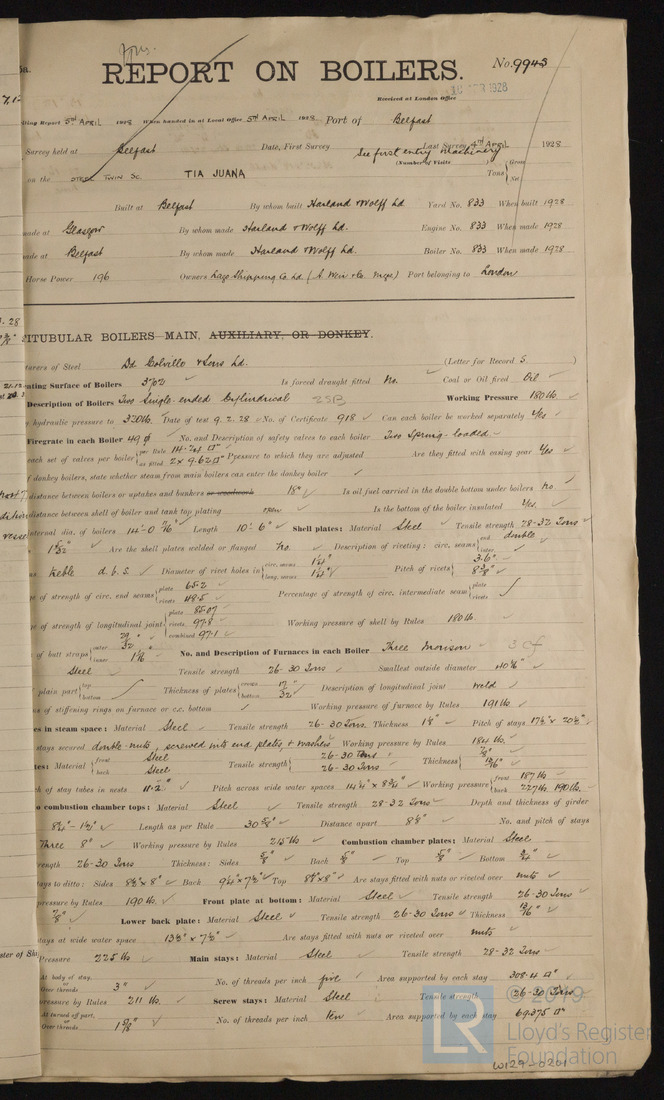 REPORT ON BOILERS.
No. 9943
APR 1928
Received at London Office
Report 5th April 1928 When handed in at Local Office 5th April 1928 Port of Belfast
Survey held at Belfast Date, First Survey See first entry machinery Last Survey 4th April 1928
(Number of Visits )
on the STEEL TWIN SC. TIA JUANA Tons { Gross Net
Built at Belfast By whom built Harland & Wolff Ld Yard No. 833 When built 1928
made at Glasgow By whom made Harland & Wolff Ld. Engine No. 833 When made 1928
made at Belfast By whom made Harland & Wolff Ld. Boiler No. 833 When made 1928
Horse Power 196 Owners Lago Shipping Co Ld (A Weir & Co. Mgrs) Port belonging to London
ITUBULAR BOILERS—MAIN, AUXILIARY, OR DONKEY.
of Steel Dd Colville & Sons Ld. (Letter for Record S. )
ating Surface of Boilers 3702 Is forced draught fitted No. Coal or Oil fired Oil
Description of Boilers Two Single ended Cylindrical 2SB Working Pressure 180 lb.
hydraulic pressure to 320 lb. Date of test 9.2.28 No. of Certificate 918 Can each boiler be worked separately Yes
Firegrate in each Boiler 49 No. and Description of safety valves to each boiler Two Spring-loaded
each set of valves per boiler { per Rule as fitted 2 x 9.62 Pressure to which they are adjusted Are they fitted with easing gear Yes
f donkey boilers, state whether steam from main boilers can enter the donkey boiler
distance between boilers or uptakes and bunkers or woodwork 18" Is oil fuel carried in the double bottom under boilers No.
distance between shell of boiler and tank top plating Is the bottom of the boiler insulated Yes.
nternal dia. of boilers 14'-0 7/16" Length 10'-6" Shell plates: Material Steel Tensile strength 28-32 Tons
1 5/32" Are the shell plates welded or flanged No. Description of riveting: circ. seams { end double inter.
treble d.b.s. Diameter of rivet holes in { circ. seams 1 1/4" long. seams 1 1/4" Pitch of rivets { 3.6" 8 3/8"
of strength of circ. end seams { plate 65.2 rivets 48.5 Percentage of strength of circ. intermediate seam { plate rivets
of strength of longitudinal joint { plate 85.07 rivets 97.8 combined 97.1 Working pressure of shell by Rules 180 lb.
of butt straps { outer 29/32" inner 1 1/16" No. and Description of Furnaces in each Boiler Three Morison 3 cf
Steel Tensile strength 26-30 Tons Smallest outside diameter
plain part { top bottom Thickness of plates { crown 17 bottom 32 Description of longitudinal joint weld
of stiffening rings on furnace or c.c. bottom Working pressure of furnace by Rules 191 lb
es in steam space: Material Steel Tensile strength 26-30 Tons. Thickness 1 1/8" Pitch of stays 17 1/2" x 20 1/2"
stays secured double-nuts, screwed into end plates, & washers Working pressure by Rules 184 lb.
tes: Material { front Steel back Steel Tensile strength { 26-30 Tons 26-30 Tons Thickness { 7/8" 13/16"
of stay tubes in nests Pitch across wide water spaces 14 1/4" x 8 3/4" Working pressure { front 187 lb back 227 lb, 190 lb.
o combustion chamber tops: Material Steel Tensile strength 28-32 Tons Depth and thickness of girder
8 3/4" - 1 1/2" Length as per Rule 30 5/8" Distance apart 8 5/8" No. and pitch of stays
Three 8" Working pressure by Rules 215 lb Combustion chamber plates: Material Steel
trength 26-30 Tons Thickness: Sides 5/8" Back 5/8" Top 5/8" Bottom 3/4"
tays to ditto: Sides 8 1/2" x 8" Back 9 1/4" x 7 1/2" Top 8 5/8" x 8" Are stays fitted with nuts or riveted over nuts
pressure by Rules 190 lb. Front plate at bottom: Material Steel Tensile strength 26-30 Tons
7/8" Lower back plate: Material Steel Tensile strength 26-30 Tons Thickness 13/16"
stays at wide water space 13 1/2" x 7 1/2" Are stays fitted with nuts or riveted over nuts
Pressure 225 lb Main stays: Material Steel Tensile strength 28-32 Tons
At body of stay, or Over threads 3" No. of threads per inch five Area supported by each stay 308.4
pressure by Rules 211 lb. Screw stays: Material Steel Tensile strength 26-30 Tons
At turned off part, or Over threads 1 5/8" No. of threads per inch ten Area supported by each stay 69.375
© 2019
LR
Lloyd's Register
Foundation
W129-0201